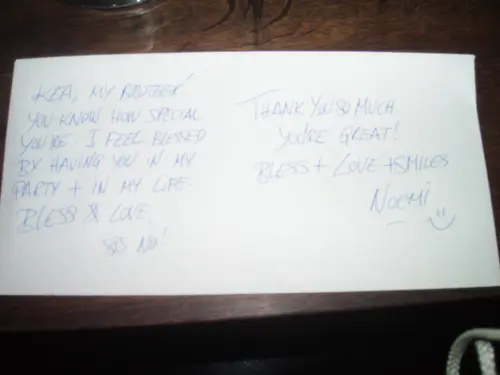 KEA, MY BROTHER
YOU KNOW HOW SPECIAL
YOU'RE I FEEL BLESSED
BY HAVING YOU IN MY
PARTY + IN MY LIFE.
BLESS & LOVE,
SIS NO'
THANK YOU SO MUCH
YOU'RE GREAT!
BLESS + LOVE + SMILES
NOEMI